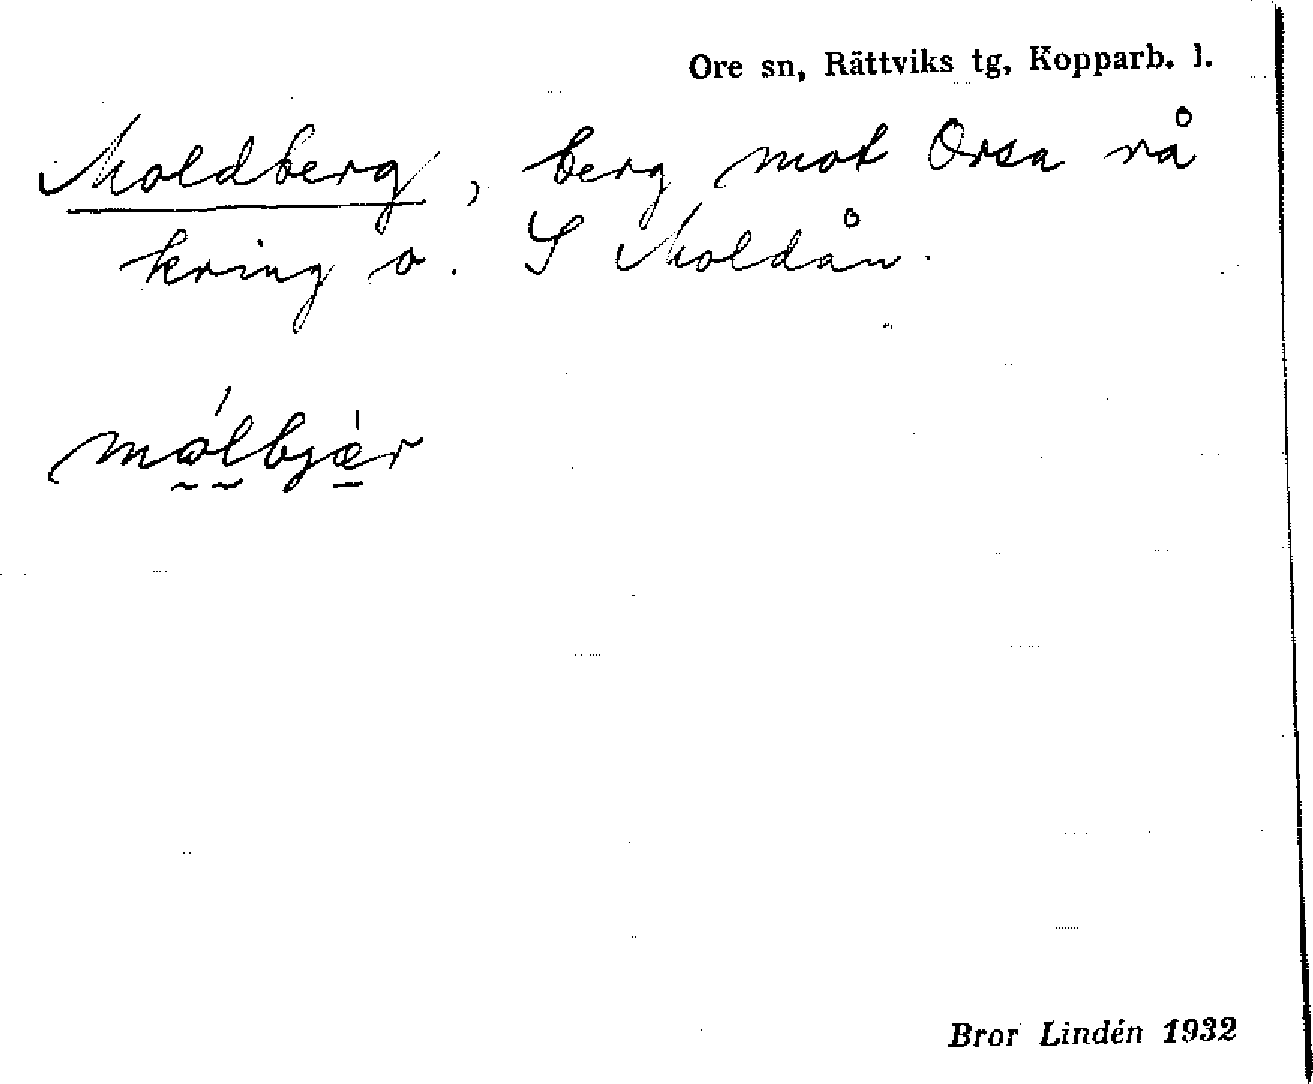 Ore sn, Rättviks tg, Kopparb. l.
Moldberg, berg mot Orsa rå
kring o. S Moldån.
mólbjèr
Bror Lindén 1932